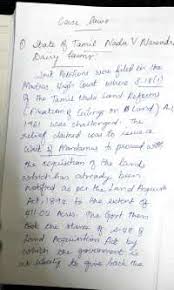 Case laws
① State of Tamil Nadu V Narendra
Dairy Farms:
Writ Petitions were filed in the
Madras High Court where S-18(1)
of the Tamil Nadu Land Reforms
(Fixation of Ceilings on Land) Act
1961 was challenged. The
relief claimed was to issue a
Writ of Mandamus to proceed with
the requisition of the lands
which has already been
notified as per the Land Acquisition
Act, 1894 to the extent of
411.00 Acres. The Govt then
took the stance of S-48 of
Land Acquisition Act by
which the government is
at liberty to give back the